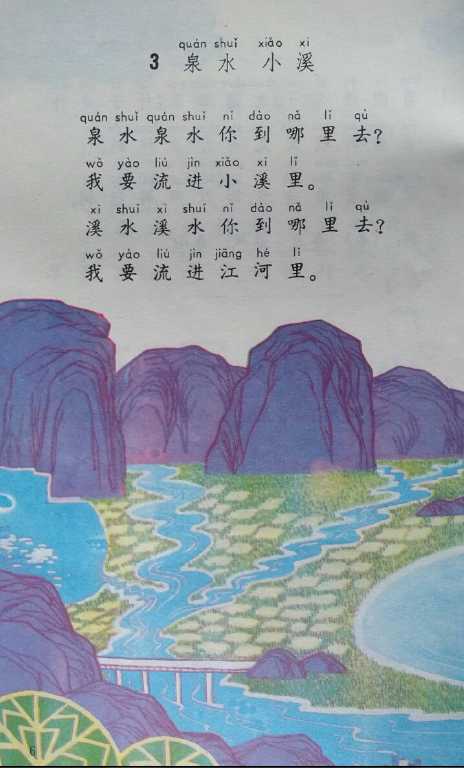 quán shuǐ xiǎo xī
3 泉水小溪
quán shuǐ quán shuǐ nǐ dào nǎ lǐ qù
泉水泉水你到哪里去？
wǒ yào liú jìn xiǎo xī lǐ
我要流进小溪里。
xī shuǐ xī shuǐ nǐ dào nǎ lǐ qù
溪水溪水你到哪里去？
wǒ yào liú jìn jiāng hé lǐ
我要流进江河里。
6